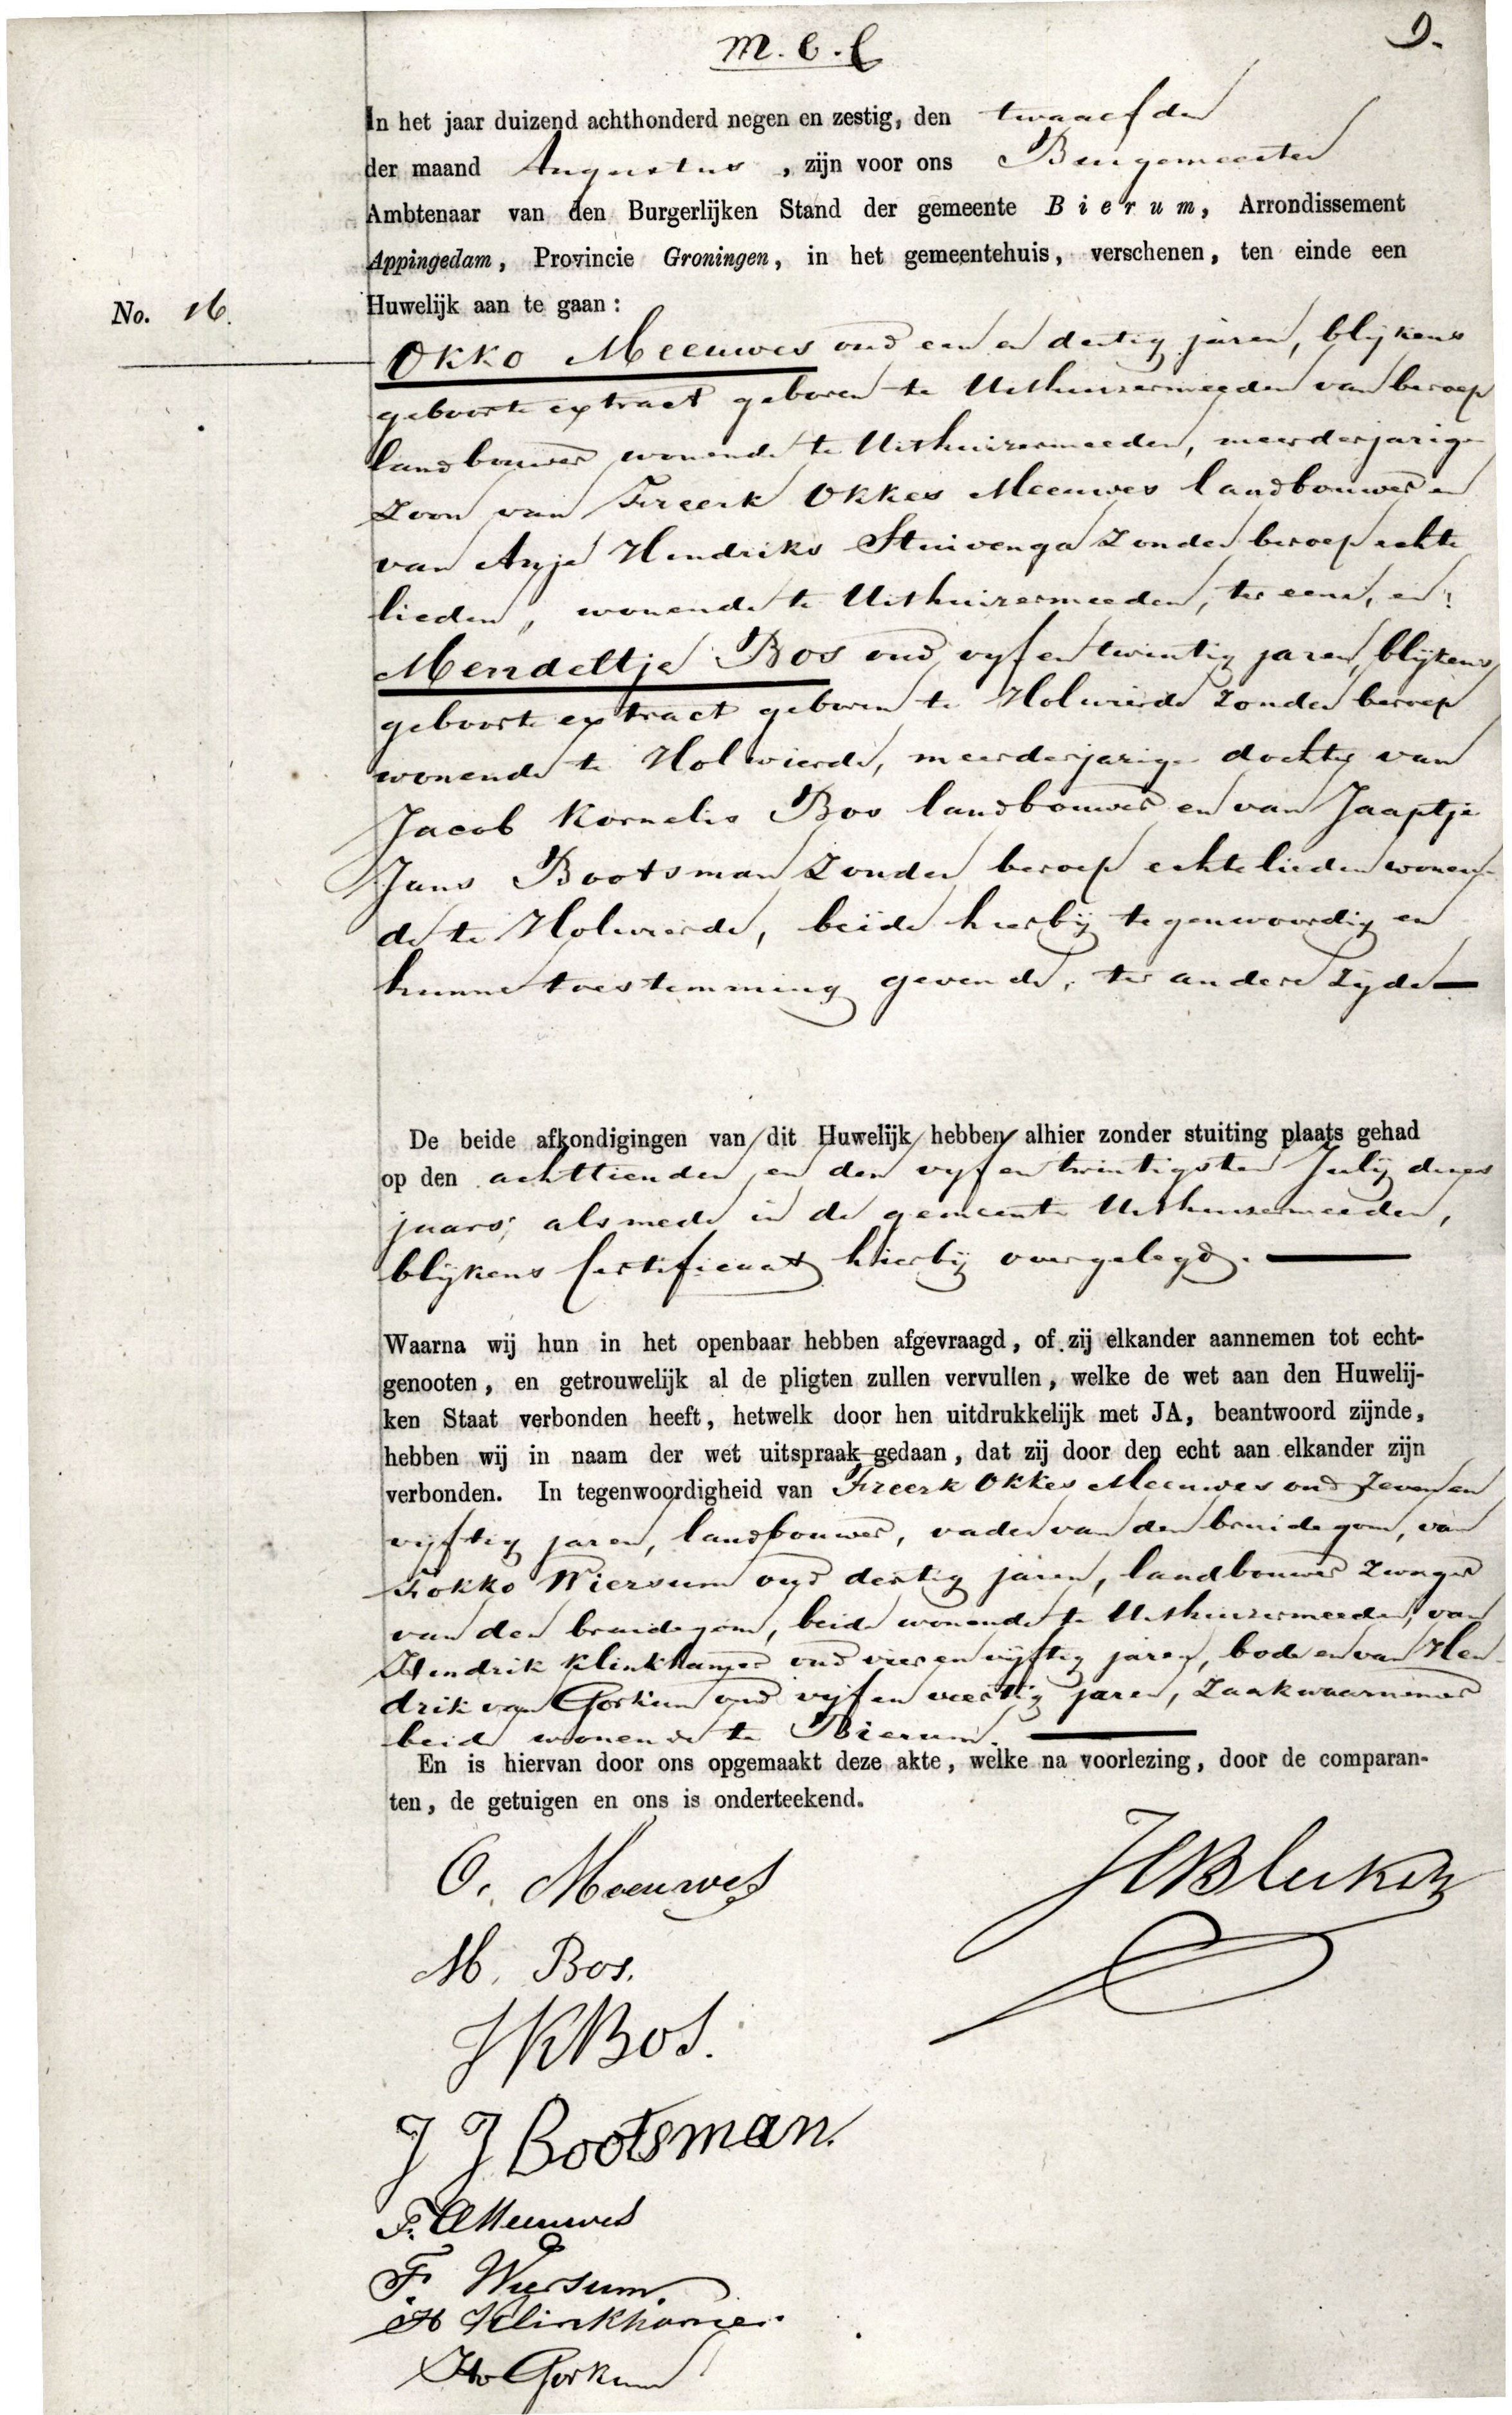 M. C. C
9.
In het jaar duizend achthonderd negen en zestig, den twaalfden
der maand Augustus, zijn voor ons Burgemeester
Ambtenaar van den Burgerlijken Stand der gemeente Bierum, Arrondissement
Appingedam, Provincie Groningen, in het gemeentehuis, verschenen, ten einde een
Huwelijk aan te gaan:
No. 16.
Okko Meeuwes oud een en dertig jaren, blijkens
geboorte extract geboren te Uithuizermeeden van beroep
landbouwer wonende te Uithuizermeeden, meerderjarige
Zoon van Freerk Okkes Meeuwes landbouwer en
van Anje Hendriks Stuivenga Zonder beroep echte
lieden, wonende te Uithuizermeeden, ter eene, en:
Mendeltje Bos oud vyf en twintig jaren, blijkens
geboorte extract geboren te Holwierde Zonder beroep
wonende te Holwierde, meerderjarige dochter van
Jacob Kornelis Bos landbouwer en van Jaaptje
Jans Bootsman Zonder beroep echtelieden wonen-
de te Holwierde, beide hierbij tegenwoordig en
hunne toestemming gevende, ter andere Zyde
De beide afkondigingen van dit Huwelijk hebben alhier zonder stuiting plaats gehad
op den achttienden en den vyf en twintigsten Julij dezes
jaars, alsmede in de gemeente Uithuizermeeden,
blijkens Certificaat hierbij overgelegd.
Waarna wij hun in het openbaar hebben afgevraagd, of zij elkander aannemen tot echt-
genooten, en getrouwelijk al de pligten zullen vervullen, welke de wet aan den Huwelij-
ken Staat verbonden heeft, hetwelk door hen uitdrukkelijk met JA, beantwoord zijnde,
hebben wij in naam der wet uitspraak gedaan, dat zij door den echt aan elkander zijn
verbonden. In tegenwoordigheid van Freerk Okkes Meeuwes oud Zeven en
vijftig jaren, landbouwer, vader van den bruidegom, van
Fokko Wiersum oud dertig jaren, landbouwer Zwager
van den bruidegom, beide wonende te Uithuizermeeden, van
Hendrik Klinkhamer oud vier en vijftig jaren, bode en van Hen-
drik van Gorkum oud vijf en veertig jaren, Zaakwaarnemer
beide wonende te Bierum.
En is hiervan door ons opgemaakt deze akte, welke na voorlezing, door de comparan-
ten, de getuigen en ons is onderteekend.
O. Meeuwes
M. Bos.
JKBos.
J J Bootsman.
F. O Meeuwes
F. Wiersum
H Klinkhamer
Hv Gorkum